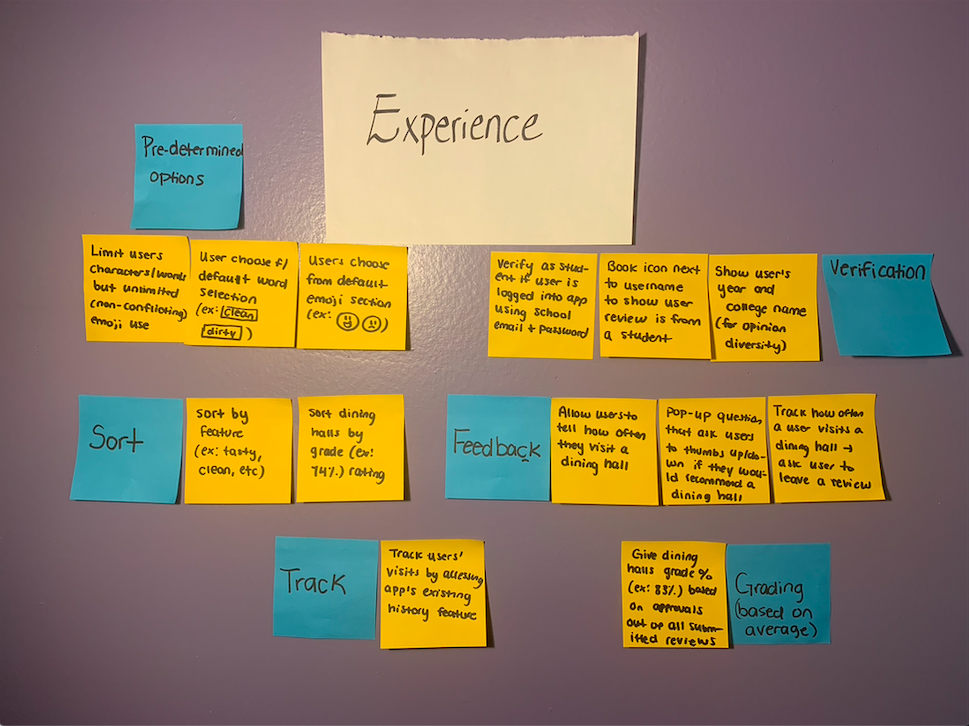 Experience
Pre-determined
options
Limit users
characters/words
but unlimited
(non-confliting)
emoji use
User choose f/
default word
selection
(ex: clean
dirty)
Users choose
from default
emoji section
(ex: 😃 ☹)
Verify as stud-
ent if user is
logged into app
using school
email + password
Book icon next
to username
to show user
review is from
a student
Show user's
year and
college name
(for opinion
diversity)
Verification
Sort
Sort by
feature
(ex: tasty,
clean, etc)
Sort dining
halls by
grade (ex:
74%) rating
Feedback
Allow users to
tell how often
they visit a
dining hall
Pop-up question
that ask users
to thumbs up/do-
wn if they wou-
ld recommend a
dining hall
Track how often
a user visits a
dining hall →
ask user to
leave a review
Track
Track users'
visits by accessing
app's existing
history feature
Give dining
halls grade %
(ex: 83%) based
on approvals
out of all subm-
itted reviews
Grading
(based on
average)